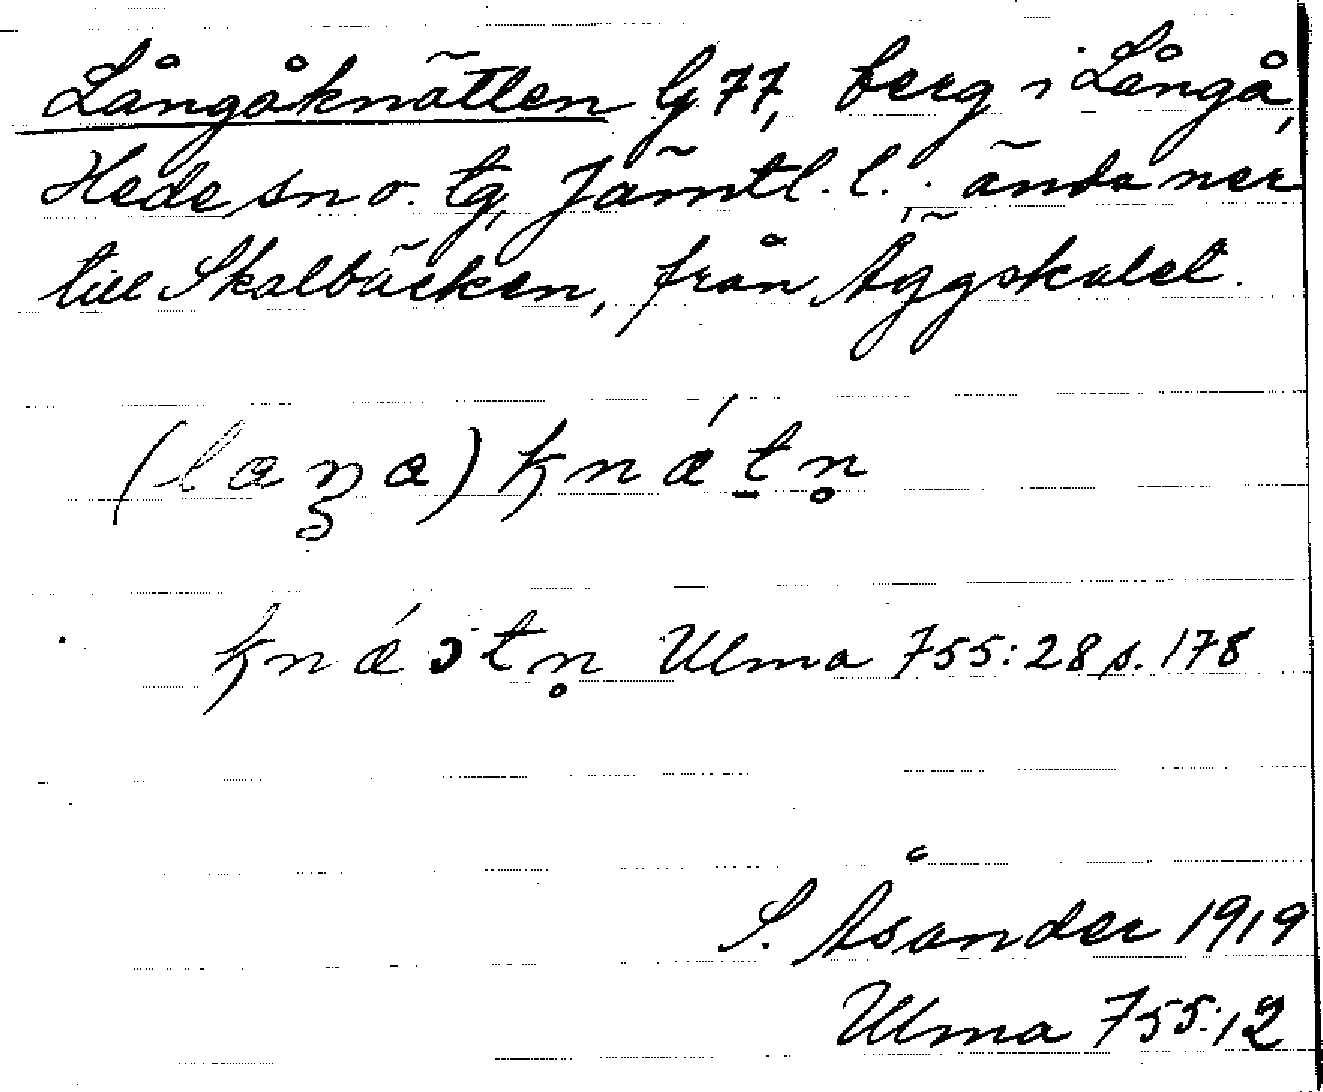 Långåknätten G 77, berg i Långå,
Hede sn o. tg, Jämtl. l. ända ner
till Skalbäcken, från Äggskalet.
(laŋa) knǽtn̥
knǽɔtn̥ Ulma 755:28 s. 178
S. Åsander 1919
Ulma 755:12